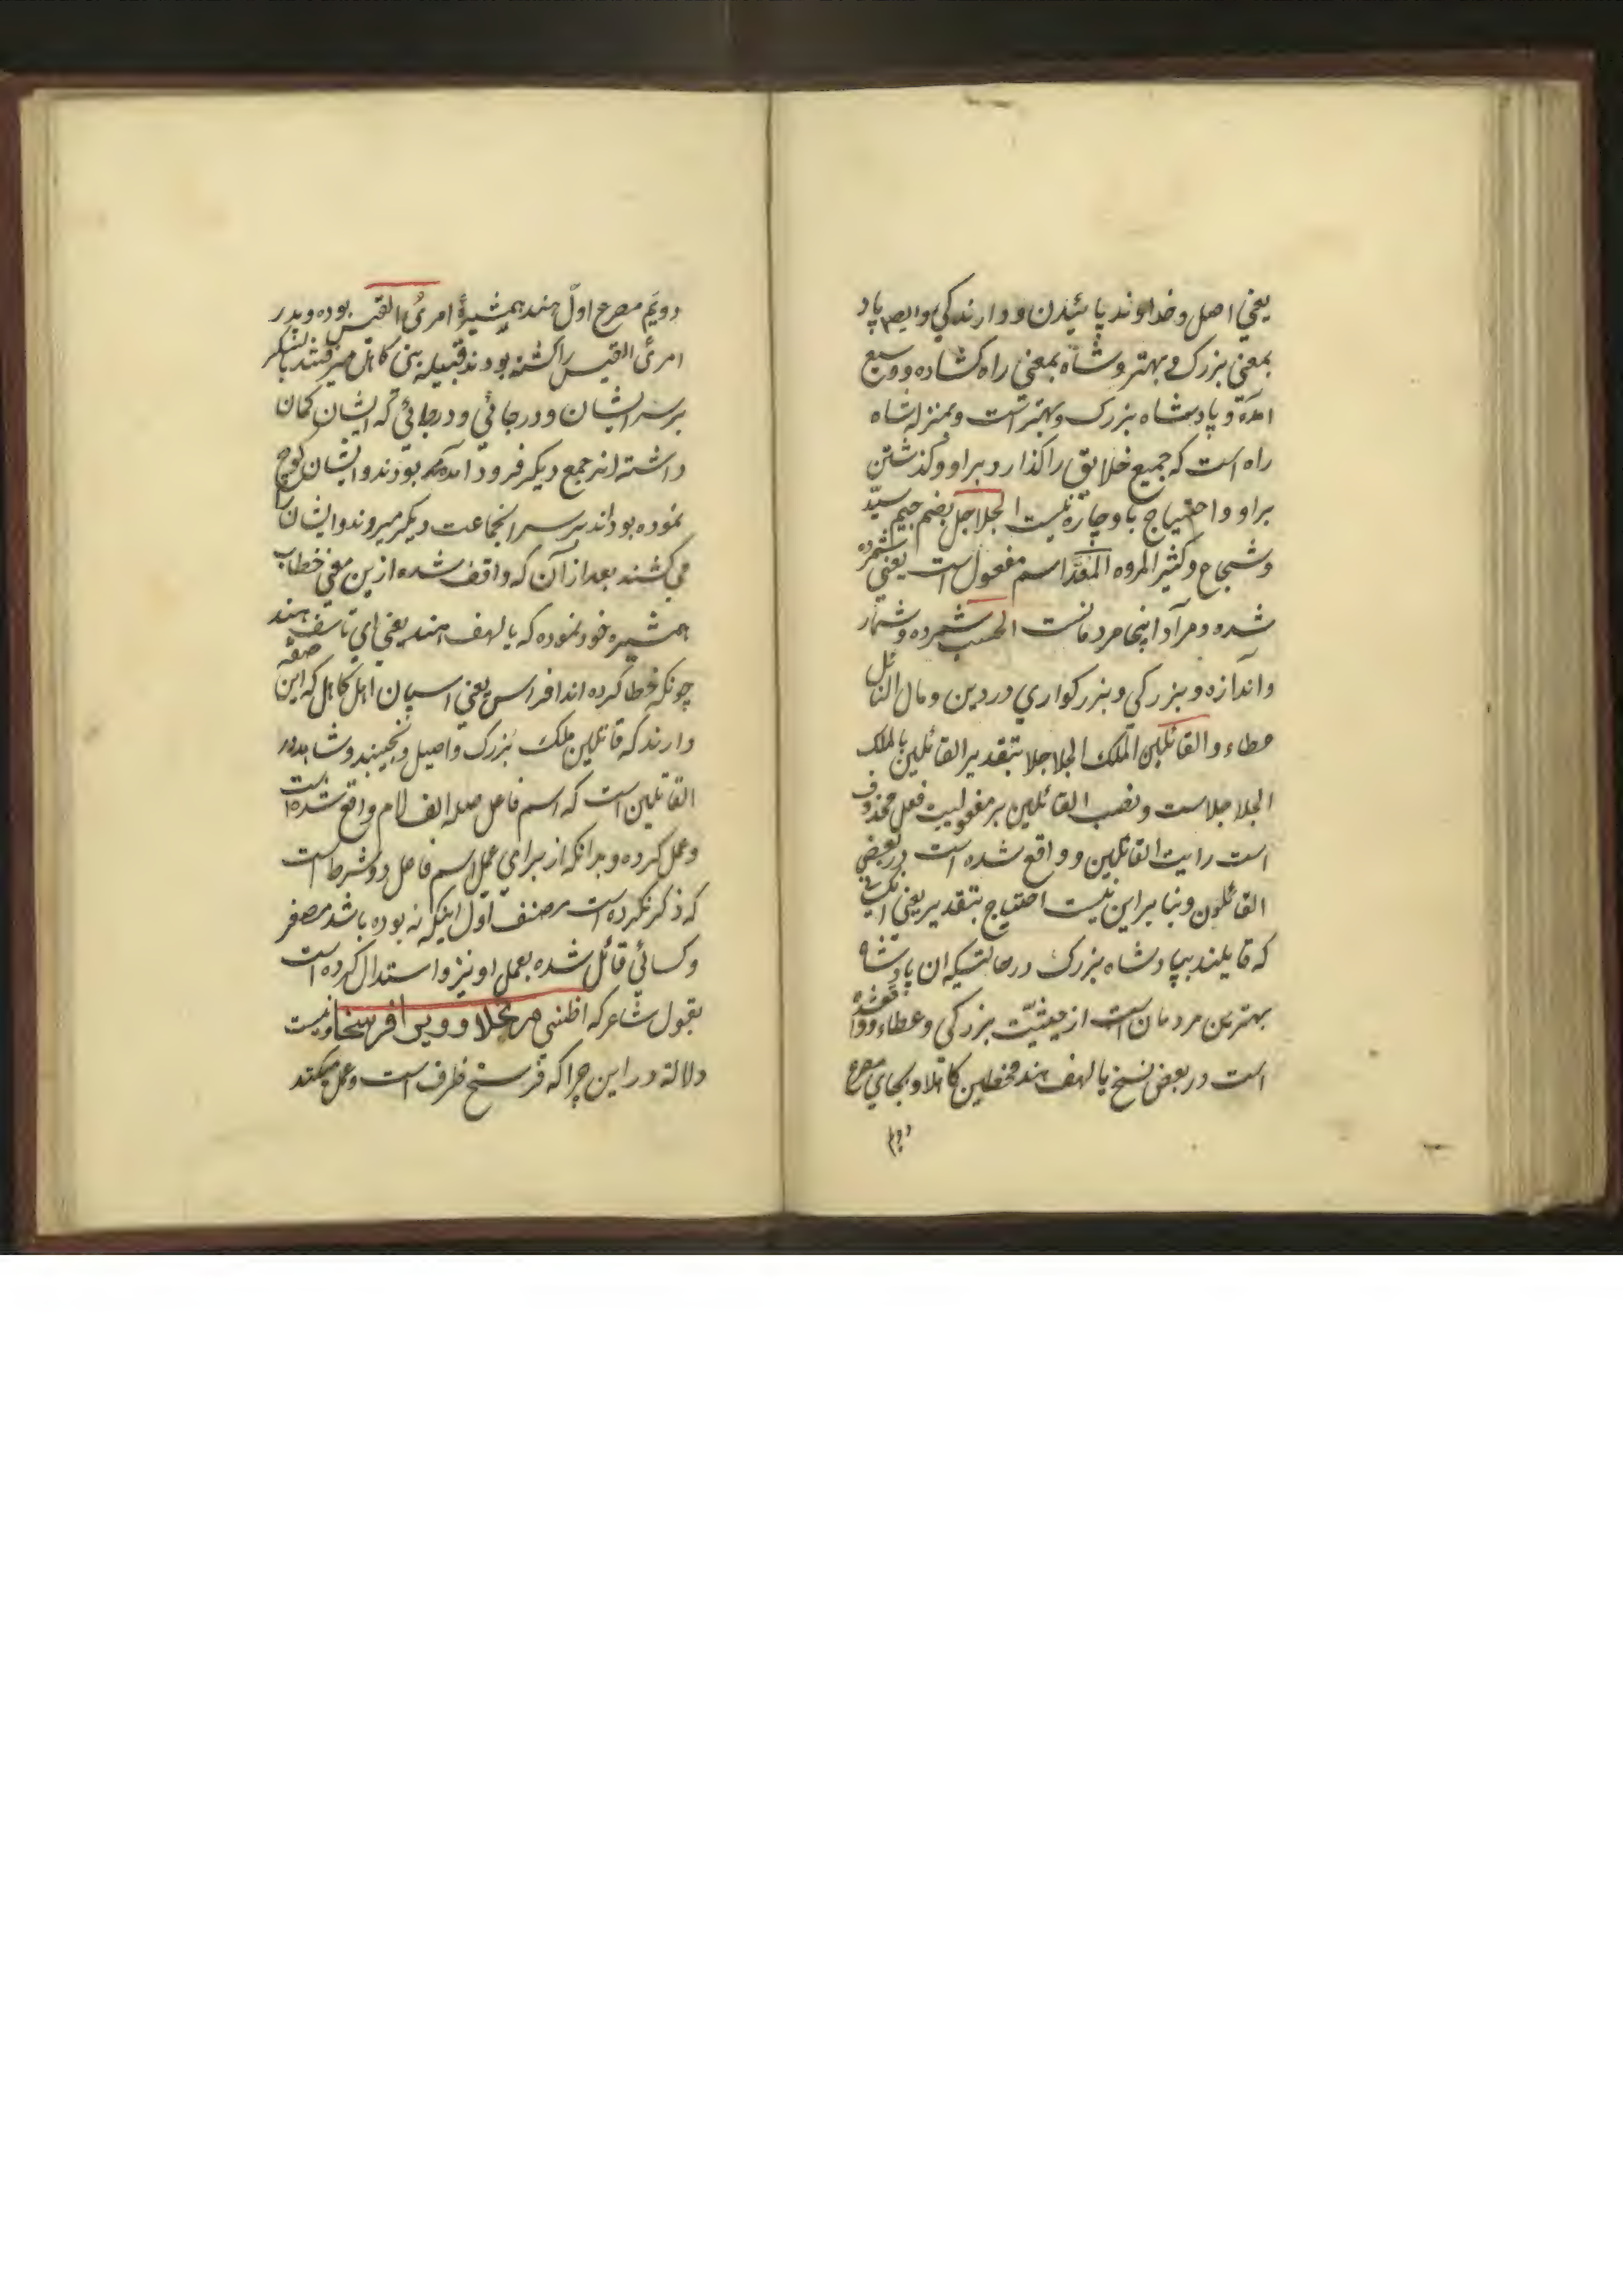 یعنی اصل و خداوند پائیدن و دارندگی و ایضا پاد
بمعنی بزرک و بهتر و شاه بمعنی راه کشاده و وسیع
آمده و پادشاه بزرک و بهتر است و بمنزله شاه
راه است که جمیع خلایق را کذار د بر او و کذشتن
بر او و احتیاج باو چاره نیست الجلاجل بضم جیم سیّد
و شجاع و کثیر المروه المعَدّ اسم مفعول است یعنی شمرده
شده و مراد اینجا مردمانست الحسب شمرده و شمار
و اندازه و بزرکی و بزرکواری در دین و مال النائل
عطاء و القائلین الملک الجلاجلا بتقدیر القائلین بالملک
الجلاجلاست و نصب القائلین بر مفعولیت فعل محذوف
است رایت القائلین و واقع شده است در بعضی
القائلون و بنا بر این نیست احتیاج بتقدیر یعنی
که قایلند بپادشاه بزرک در حالتیکه ان پادشاه
بهترین مردمان است از حیثیّت بزرکی و عطاء و واقعشده
است در بعض نسخ یا لهف هند کاهلا و بجای مصرع
دویم
دویّم مصرع اوّل هند همشیرهٔ امرئ القیس بوده و پدر
امرئ القیس را کشته بودند قبیله بنی کاهل میرفتند با لشکر
بر سر ایشان و در جائی و در جائی که ایشان کمان
داشته اند جمع دیکر فرود آمده بودند و ایشان کوچ
نموده بوداند بر سر انجماعت دیکر میروند و ایشان را
می کشند بعد از آن که واقف شده ازین معنی خطاب
همشیره خود نموده که یا لهف هند یعنی ای تاسف هند
چونکه خطا کرده اند افراس یعنی اسپان اهل کاهل که این صفه
دارند که قاتلین ملک بزرک و اصیل و نجیبند و شاهد در
القاتلین است که اسم فاعل صله الف لام واقع شده است
و عمل کرده و بدانکه از برای عمل اسم فاعل دو شرط است
که ذکر نکرده است مصنف اول اینکه نه بوده باشد مصغر
و کسائی قائل شده بعمل او نیز و استدلال کرده است
بقول شاعر که اظننی مرتحلا و سویر افرسخا و نیست
دلالة در این چرا که فرسخ ظرف است و عمل میکند